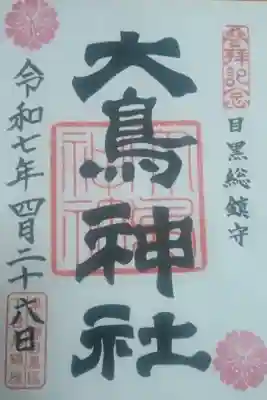 登拝記念
目黒総鎮守
大鳥神社
令和七年四月二十八日